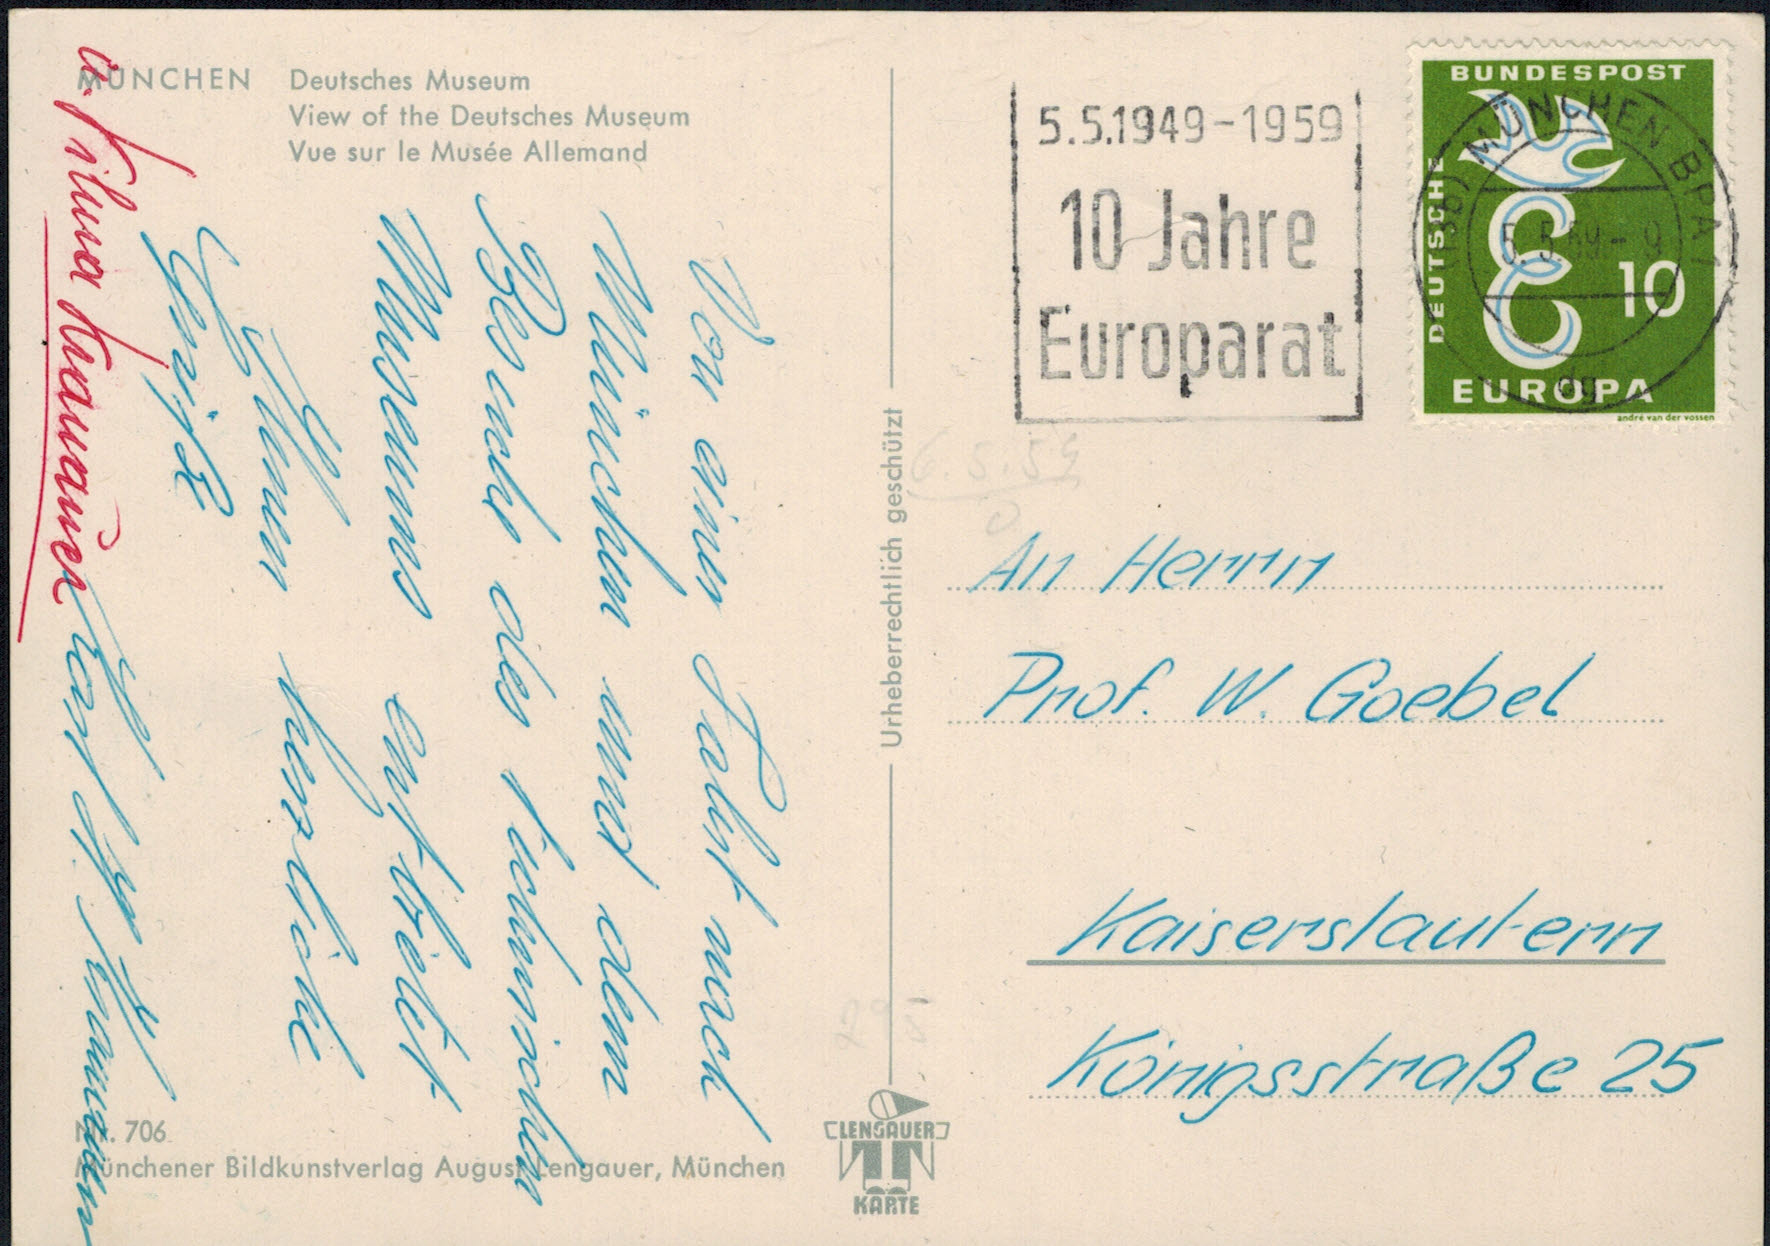 MÜNCHEN Deutsches Museum
View of the Deutsches Museum
Vue sur le Musée Allemand
Von einer Fahrt nach
München und dem
Besuche des technischen
Museums entbietet
Ihnen herzliche
Grüße
Nr. 706
Münchener Bildkunstverlag August Lengauer, München
Urheberrechtlich geschützt
LENGAUER
KARTE
5.5.1949-1959
10 Jahre
Europarat
BUNDESPOST
DEUTSCHE
10
EUROPA
andré van der vossen
MÜNCHEN BPA 1
5.5.59-9
6.5.59
An Herrn
Prof. W. Goebel
Kaiserslautern
Königsstraße 25